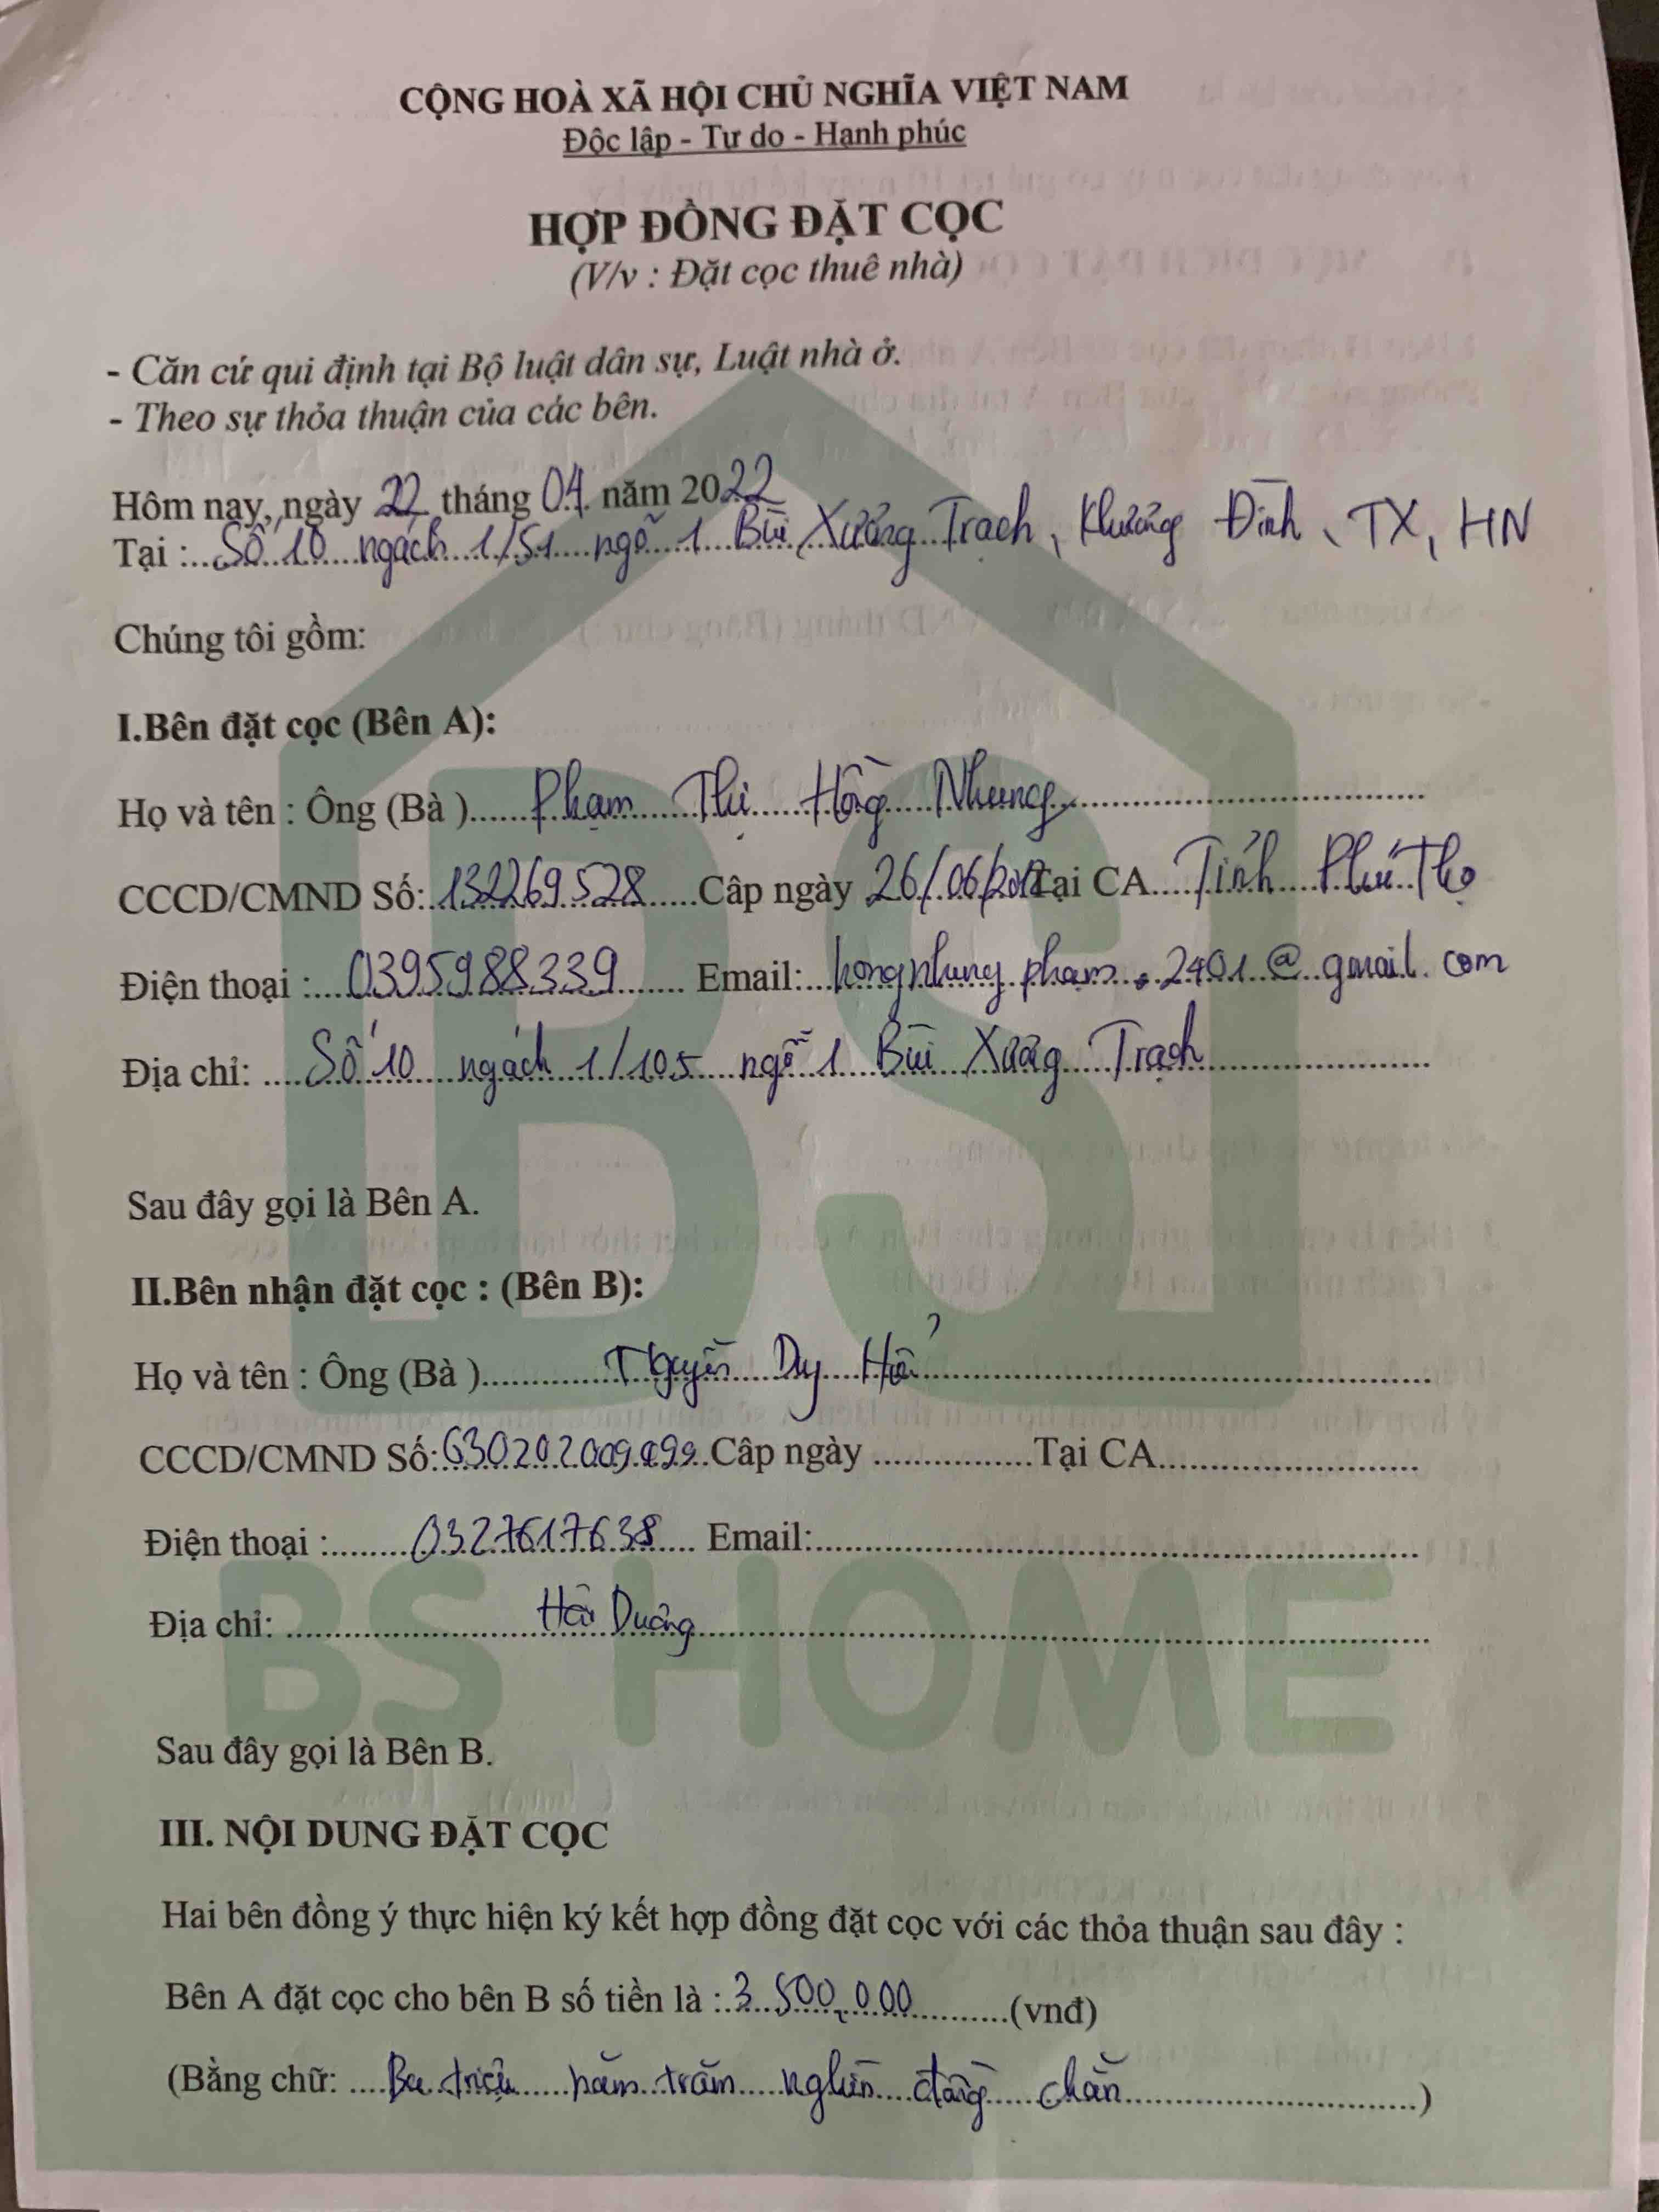 CỘNG HOÀ XÃ HỘI CHỦ NGHĨA VIỆT NAM
Độc lập - Tự do - Hạnh phúc
HỢP ĐỒNG ĐẶT CỌC
(V/v : Đặt cọc thuê nhà)
- Căn cứ qui định tại Bộ luật dân sự, Luật nhà ở.
- Theo sự thỏa thuận của các bên.
Hôm nay, ngày 22 tháng 04 năm 2022
Tại : Số 10 ngách 1/51 ngõ 1 Bùi Xương Trạch, Khương Đình, TX, HN
Chúng tôi gồm:
I.Bên đặt cọc (Bên A):
Họ và tên : Ông (Bà ) Phạm Thị Hồng Nhung
CCCD/CMND Số: 132269528 Câp ngày 26/06/2012 Tại CA Tỉnh Phú Thọ
Điện thoại : 0395988339 Email: hongnhungpham.2401@gmail.com
Địa chỉ: Số 10 ngách 1/105 ngõ 1 Bùi Xương Trạch
Sau đây gọi là Bên A.
II.Bên nhận đặt cọc : (Bên B):
Họ và tên : Ông (Bà ) Nguyễn Duy
CCCD/CMND Số: Câp ngày Tại CA
Điện thoại : 0327617638 Email:
Địa chỉ: Hải Dương
BS HOME
Sau đây gọi là Bên B.
III. NỘI DUNG ĐẶT CỌC
Hai bên đồng ý thực hiện ký kết hợp đồng đặt cọc với các thỏa thuận sau đây :
Bên A đặt cọc cho bên B số tiền là : 3.500.000 (vnđ)
(Bằng chữ: Ba triệu năm trăm nghìn đồng chẵn )